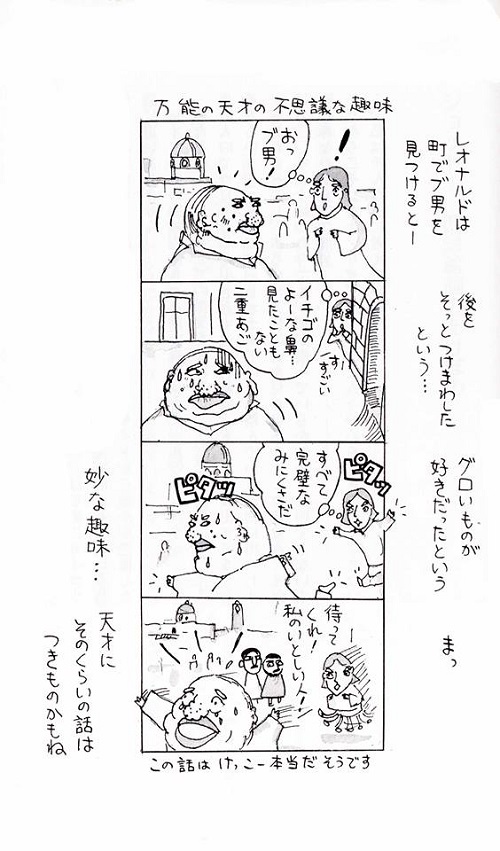 万能の天才の不思議な趣味
レオナルドは
町でブ男を
見つけるとー
おっ
ブ男!
!
後を
そっとつけまわした
という…
イチゴの
よーな鼻…
見たことも
ない
二重あご
すごい
グロいものが
好きだったという
ピタッ
すべて
完璧な
みにくさだ
ピタッ
妙な趣味…
まっ
待って
くれ!
私のいとしい人!
天才に
そのくらいの話は
つきものかもね
この話は けっこー本当だ そうです